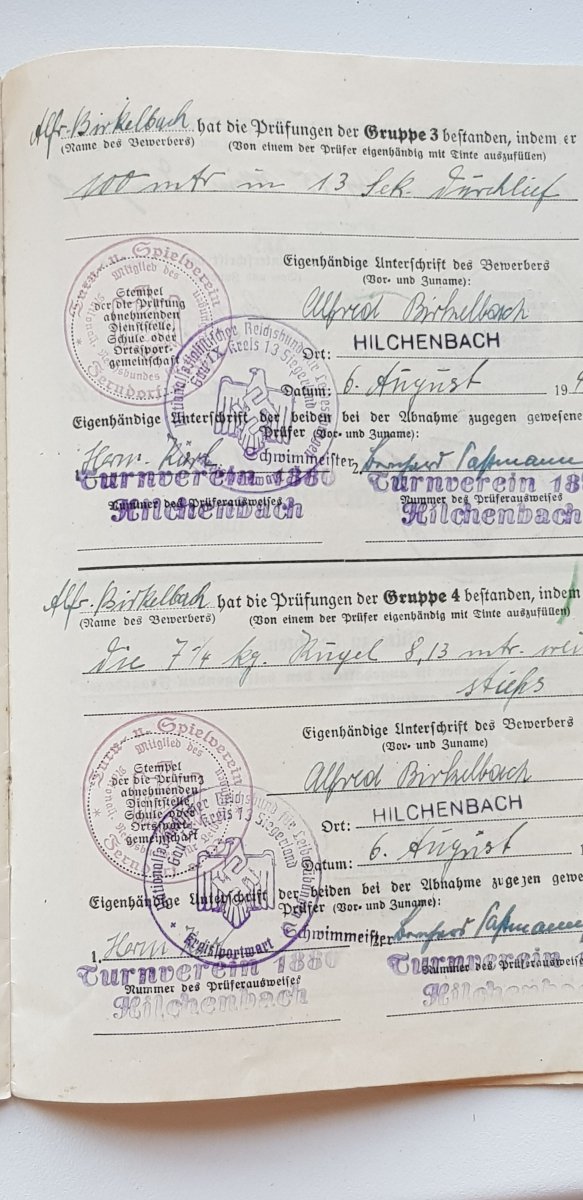 Alfr. Birkelbach hat die Prüfungen der Gruppe 3 bestanden, indem er
(Name des Bewerbers) (Von einem der Prüfer eigenhändig mit Tinte auszufüllen)
100 mtr in 13 Sek. durchlief
Turn- u. Spielverein
Mitglied des
Stempel
der die Prüfung
abnehmenden
Dienststelle,
Schule oder
Ortssport-
gemeinschaft
Ferndorf
Eigenhändige Unterschrift des Bewerbers
(Vor- und Zuname):
Alfred Birkelbach
Ort: HILCHENBACH
Datum: 6. August 19
Nationalsozialistischer Reichsbund für Leibesübungen
Gau IX Kreis 13 Siegerland
Eigenhändige Unterschrift der beiden bei der Abnahme zugegen gewesene
Prüfer (Vor- und Zuname):
Herm. Schwimmeister
Turnverein 1880 Turnverein
Nummer des Prüferausweises Nummer des Prüferausweises
Hilchenbach Hilchenbach
Alfr. Birkelbach hat die Prüfungen der Gruppe 4 bestanden, indem
(Name des Bewerbers) (Von einem der Prüfer eigenhändig mit Tinte auszufüllen)
die 7¼ kg. Kugel 8,13 mtr.
stieß
Turn- u. Spielverein
Mitglied des
Stempel
der die Prüfung
abnehmenden
Dienststelle,
Schule oder
Ortssport-
gemeinschaft
Ferndorf
Eigenhändige Unterschrift des Bewerbers
(Vor- und Zuname)
Alfred Birkelbach
Ort: HILCHENBACH
Datum: 6. August
Reichsbund für Leibesübungen
Kreis 13 Siegerland
Kreissportwart
Eigenhändige Unterschrift der beiden bei der Abnahme zugegen gewe
Prüfer (Vor- und Zuname):
1. Herm. Schwimmeister
Turnverein 1880 Turnverein
Nummer des Prüferausweises Nummer des Prüferausweis
Hilchenbach Hilchenb